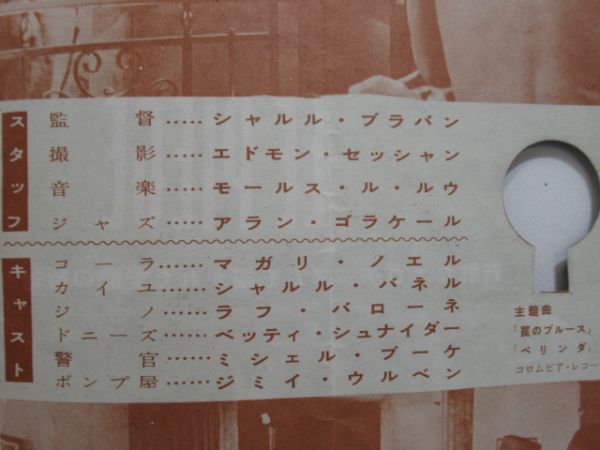 スタッフ
監督……シャルル・ブラバン
撮影……エドモン・セッシャン
音楽……モールス・ル・ルウ
ジャズ……アラン・ゴラケール
キャスト
コーラ……マガリ・ノエル
カイユ……シャルル・バネル
ジノ……ラフ・バローネ
ドニーズ……ベッティ・シュナイダー
警官……ミシェル・ブーケ
ポンプ屋……ジミイ・ウルベン
主題曲
「罠のブルース」
「ベリンダ」
コロムビア・レコー